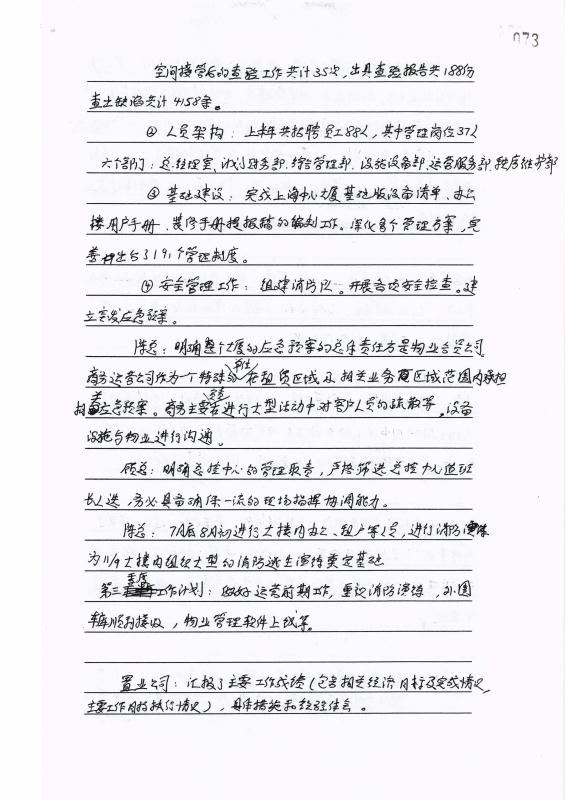 073
空间接管后的查验工作共计35次,出具查验报告共188份
查出缺陷共计4158条。
② 人员架构:上半年共招聘员工88人,其中管理岗位37人
六个部门:总经理室、计划财务部、综合管理部、设施设备部、运营服务部、秩序维护部
③ 基础建设:完成上海中心大厦基础版设备清单、办公
楼用户手册、装修手册提报稿的编制工作。深化各个管理方案,完
善 出台319个管理制度。
④ 安全管理工作:组建消防队。开展各项安全检查。建
立突发应急预案。
陈总:明确整个大厦的应急预案的总牵责任方是物业合资公司,
商务运营公司作为一个特殊的 在租赁区域及相关业务区域范围内承担
相关应急预案。商务主要 进行大型活动中对客户人员的疏散等,设备
设施与物业进行沟通。
顾总:明确总控中心的管理职责,严格筛选总控中心值班
长人选,务必具备确保一流的现场指挥协调能力。
陈总:7月底8月初进行大楼内办公、租户等人员,进行消防演练
为11/9大楼内组织大型的消防逃生演练奠定基础
第三季度工作计划:做好运营前期工作,重视消防演练,外围
车库顺利接收,物业管理软件上线等。
置业公司:汇报了主要工作成绩(包含相关经济目标及完成情况,
主要工作目标执行情况),具体措施和经验体会。